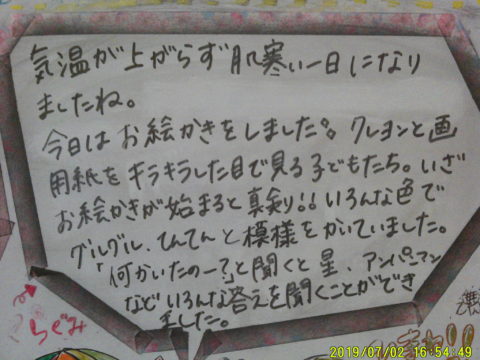 気温が上がらず肌寒い一日になり
ましたね。
今日はお絵かきをしました。クレヨンと画
用紙をキラキラした目で見る子どもたち。いざ
お絵かきが始まると真剣!!いろんな色で
グルグル、てんてんと模様をかいていました。
「何かいたのー?」と聞くと星、アンパンマン
などいろんな答えを聞くことができ
ました。
らくがみ
2019/07/02 16:54:49